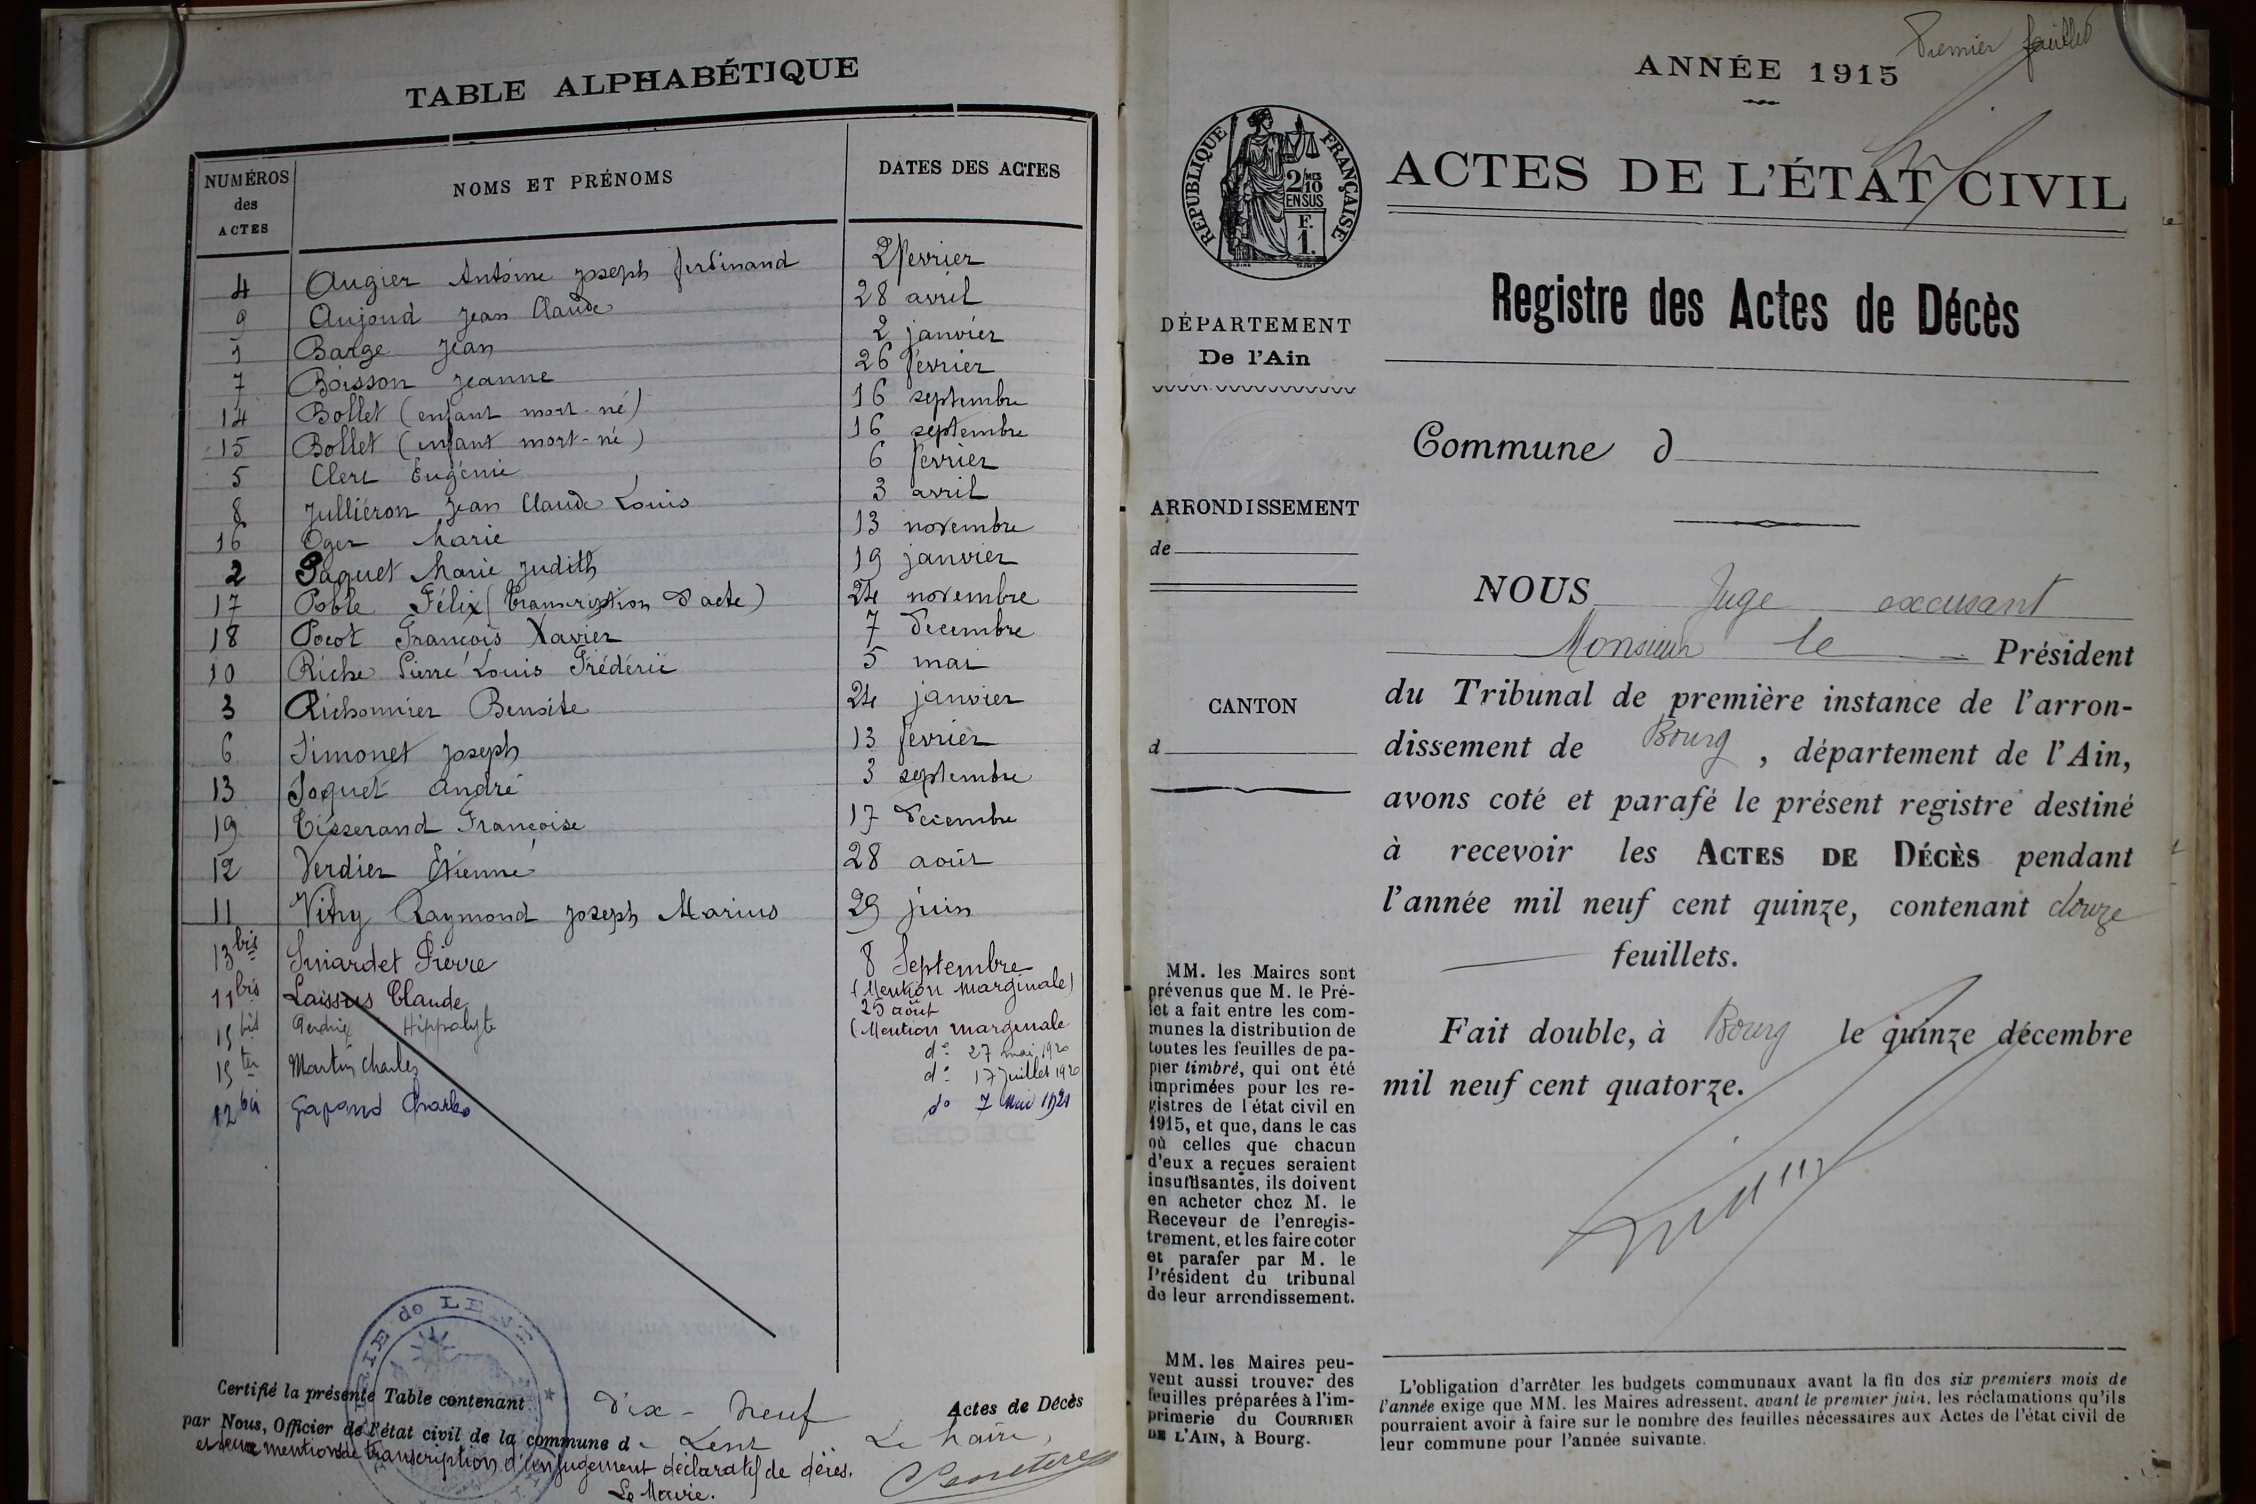 TABLE ALPHABÉTIQUE
NUMÉROS
des
ACTES
NOMS ET PRÉNOMS
DATES DES ACTES
4 Augier Antoine Joseph ferdinand 2 fevrier
9 Aujoud Jean Claude 28 avril
1 Barge Jean 2 janvier
7 Boisson Jeanne 26 fevrier
14 Bollet (enfant mort-né) 16 septembre
15 Bollet (enfant mort-né) 16 septembre
5 Clerc Eugénie 6 fevrier
8 Julliéron Jean Claude Louis 3 avril
16 Oger Marie 13 novembre
2 Paquet Marie Judith 19 janvier
17 Poble Félix (Transcription d'acte) 24 novembre
18 Pocot François Xavier 7 decembre
10 Riche Pierre Louis Frédéric 5 mai
3 Richonnier Benoite 24 janvier
6 Simonet Joseph 13 fevrier
13 Soquet André 3 septembre
19 Tisserand Françoise 17 decembre
12 Verdier Etienne 28 août
11 Vitry Raymond Joseph Marius 29 juin
13 bis Suiardet Pierre 8 Septembre
(Mention marginale)
11 bis Laissus Claude 25 août
(Mention marginale
15 bis Hippolyte d° 27 mai 1920
15 ter Martin Charles d° 17 Juillet 1920
12 bis Gapand Charles d° 7 Mai 1921
MAIRIE de LENT
Certifié la présente Table contenant Dix-Neuf Actes de Décès
par Nous, Officier de l'état civil de la commune de Lent Le Maire,
et une mention de transcription d'un jugement déclaratif de décès.
Le Maire.
Premier feuillet
ANNÉE 1915
RÉPUBLIQUE FRANÇAISE
2/MES
10
EN SUS
F.
1.
ACTES DE L'ÉTAT CIVIL
Registre des Actes de Décès
DÉPARTEMENT
De l'Ain
Commune d
ARRONDISSEMENT
de
CANTON
d
NOUS Juge excusant
Monsieur le Président
du Tribunal de première instance de l'arron-
dissement de Bourg, département de l'Ain,
avons coté et parafé le présent registre destiné
à recevoir les ACTES DE DÉCÈS pendant
l'année mil neuf cent quinze, contenant douze
feuillets.
Fait double, à Bourg le quinze décembre
mil neuf cent quatorze.
MM. les Maires sont
prévenus que M. le Pré-
fet a fait entre les com-
munes la distribution de
toutes les feuilles de pa-
pier timbré, qui ont été
imprimées pour les re-
gistres de l'état civil en
1915, et que, dans le cas
où celles que chacun
d'eux a reçues seraient
insuffisantes, ils doivent
en acheter chez M. le
Receveur de l'enregis-
trement, et les faire coter
et parafer par M. le
Président du tribunal
de leur arrondissement.
MM. les Maires peu-
vent aussi trouver des
feuilles préparées à l'im-
primerie du COURRIER
DE L'AIN, à Bourg.
L'obligation d'arrêter les budgets communaux avant la fin des six premiers mois de
l'année exige que MM. les Maires adressent, avant le premier juin, les réclamations qu'ils
pourraient avoir à faire sur le nombre des feuilles nécessaires aux Actes de l'état civil de
leur commune pour l'année suivante.